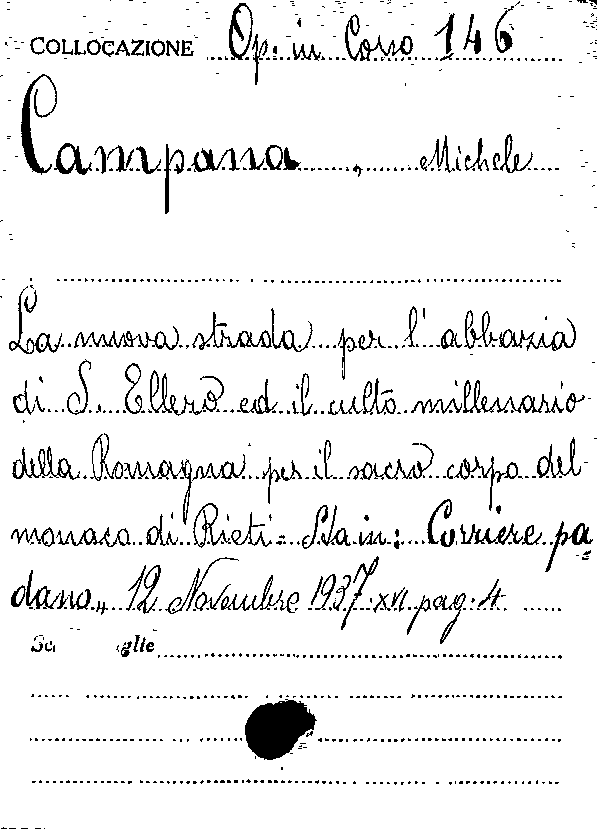 COLLOCAZIONE Op. in Corso 146
Campana, Michele
La nuova strada per l'abbazia
di S. Ellero ed il culto millenario
della Romagna per il sacro corpo del
monaca di Rieti - Sta in: Corriere pa=
dano,, 12 Novembre 1937.XVI pag. 4